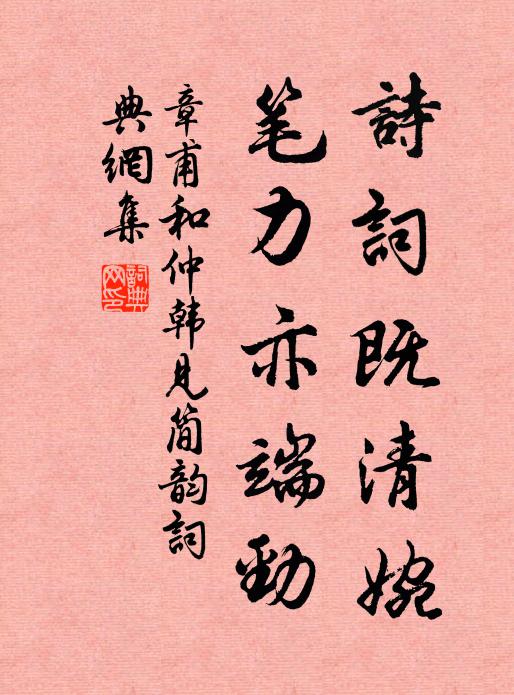 詩詞既清婉
笔力亦端勁
章甫和仲韩见简韵詞
典網集
詞典网印